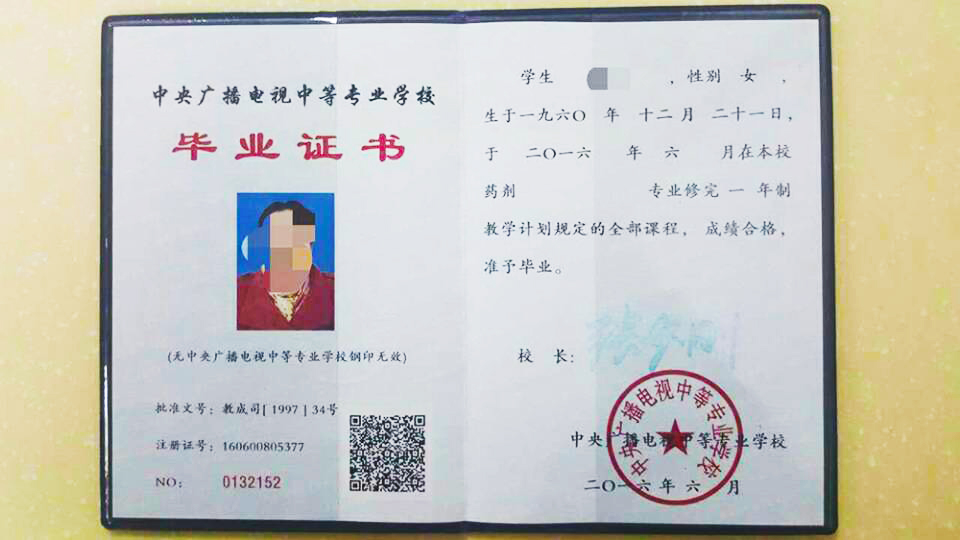 中央广播电视中等专业学校
毕业证书
(无中央广播电视中等专业学校钢印无效)
批准文号：教成司[ 1997 ] 34号
注册证号：160600805377
NO： 0132152
学生 ，性别 女 ，
生于一九六〇 年 十二 月 二十一日，
于 二〇一六 年 六 月在本校
药剂 专业修完 一 年制
教学计划规定的全部课程， 成绩合格，
准予毕业。
校 长：
中央广播电视中等专业学校
中央广播电视中等专业学校
二〇一六 年 六 月